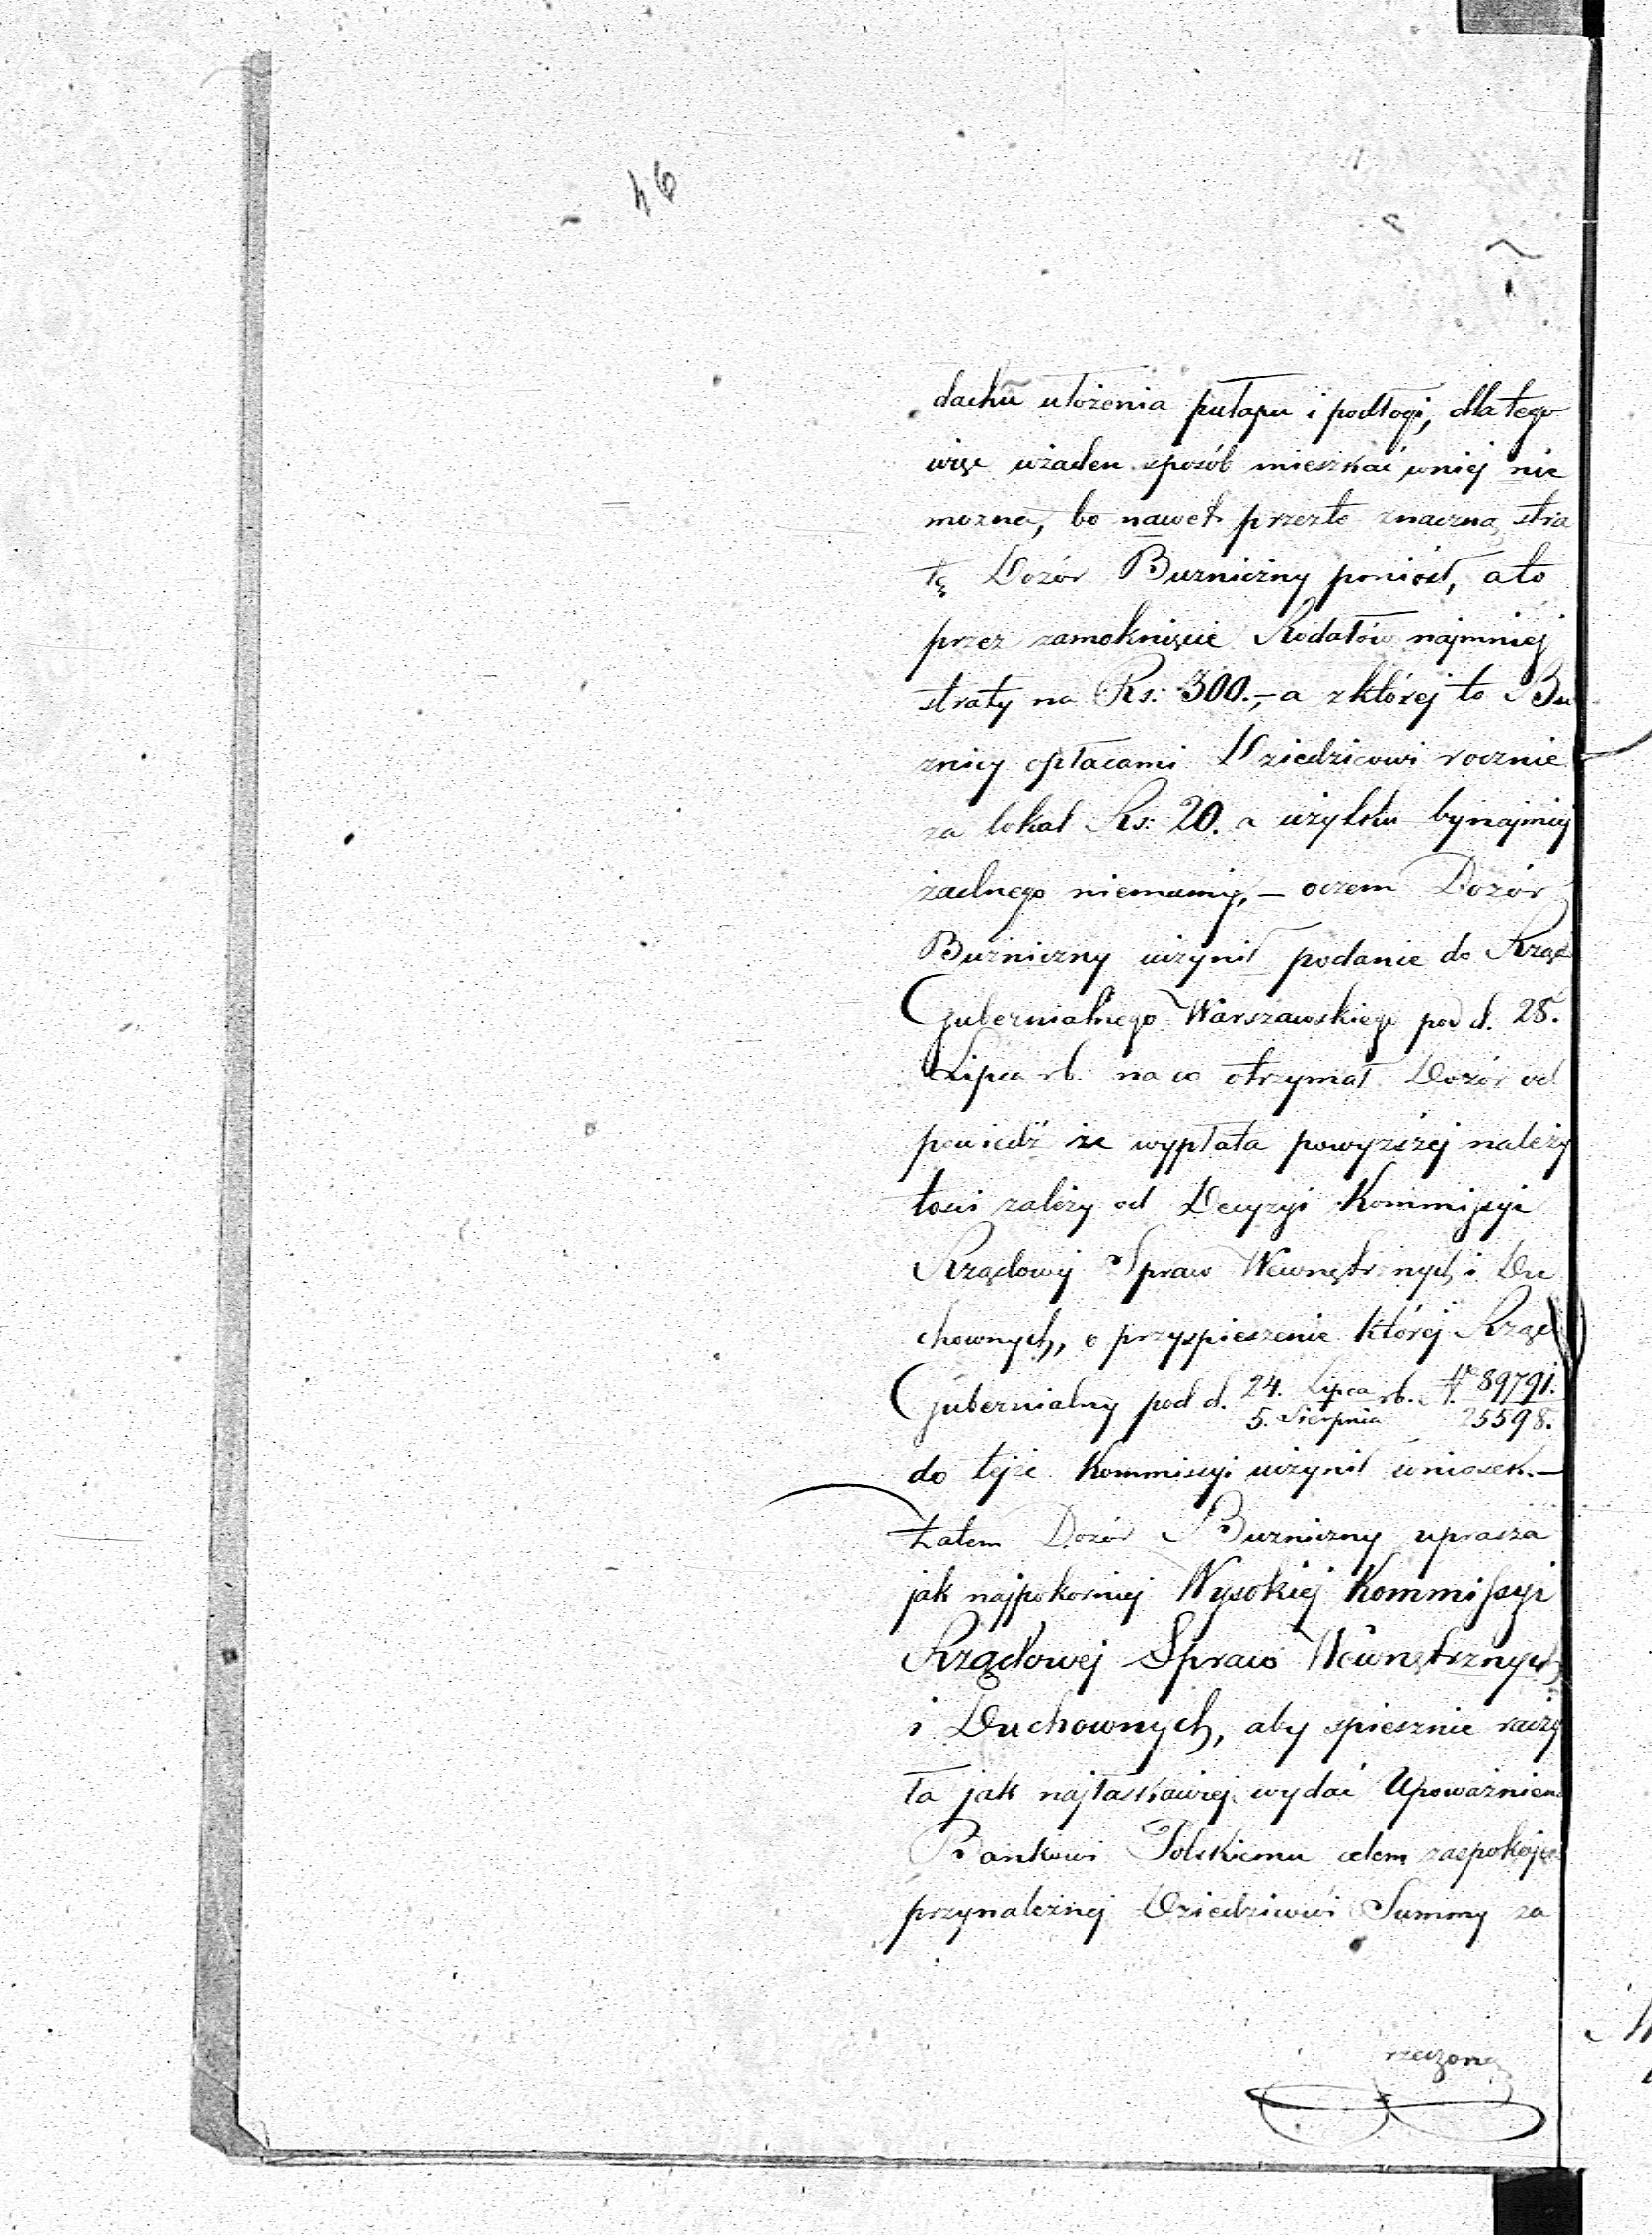 46
dachu ułożenia pułapu i podłogi, dla tego
więc wżaden sposób mieszkać wniej nie
można, bo nawet przezto znaczną stra
tę Dozór Bużniczny poniósł, a to
przez zamoknięcie Rodałów najmniej
straty na Rs: 300.,– a z której to Bu
żnicy opłacami Dziedzicowi rocznie
za lokal Rs: 20. a użytku bynajmniej
żadnego niemamy, – oczem Dozór
Bużniczny uczynił podanie do Rządu
Gubernialnego Warszawskiego pod d. 28.
Lipca rb. na co otrzymał Dozór od
powiedź że wypłata powyższej należy
tości zależy od Decyzyi Kommissyi
Rządowej Spraw Wewnętrznych i Du
chownych, o przyspieszenie której Rząd
Gubernialny pod d. 24. Lipca / 5. Sierpnia rb. N. 89791. / 25598.
do tejże Kommissyi uczynił wniosek. –
Zatem Dozór Bużniczny uprasza
jak najpokorniej Wysokiej Kommissyi
Rządowej Spraw Wewnętrznych
i Duchownych, aby spiesznie raczy
ła jak najłaskawiej wydać Upoważnienie
Bankowi Polskiemu celem zaspokoje
przynależnej Dziedzicowi Summy za
rzeczoną